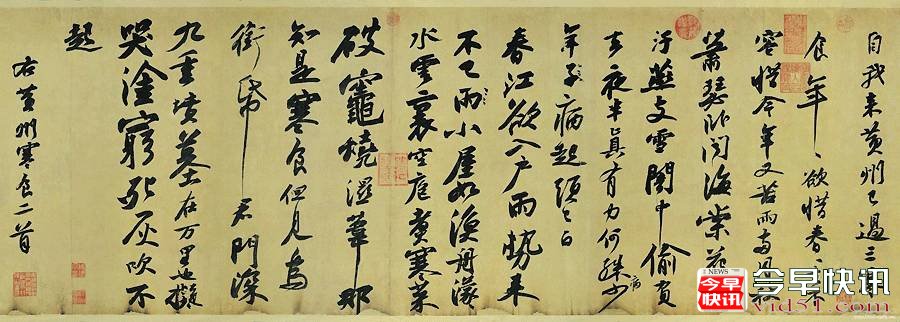 自我来黄州已過三
食年〻欲惜春〻
容惜今年又苦雨兩月秋
蕭瑟卧聞海棠花
汙燕支雪闇中偷負
去夜半真有力何殊少
病
年子病起須已白
春江欲入户雨勢来
不已雨小屋如漁舟濛〻
水雲裏空庖煮寒菜
破竈燒濕葦那
知是寒食但見烏
銜帋君門深
九重墳墓在万里也擬
哭塗窮死灰吹不
起
右黄州寒食二首
NEWS
今早快讯
今早快讯
vid51.com